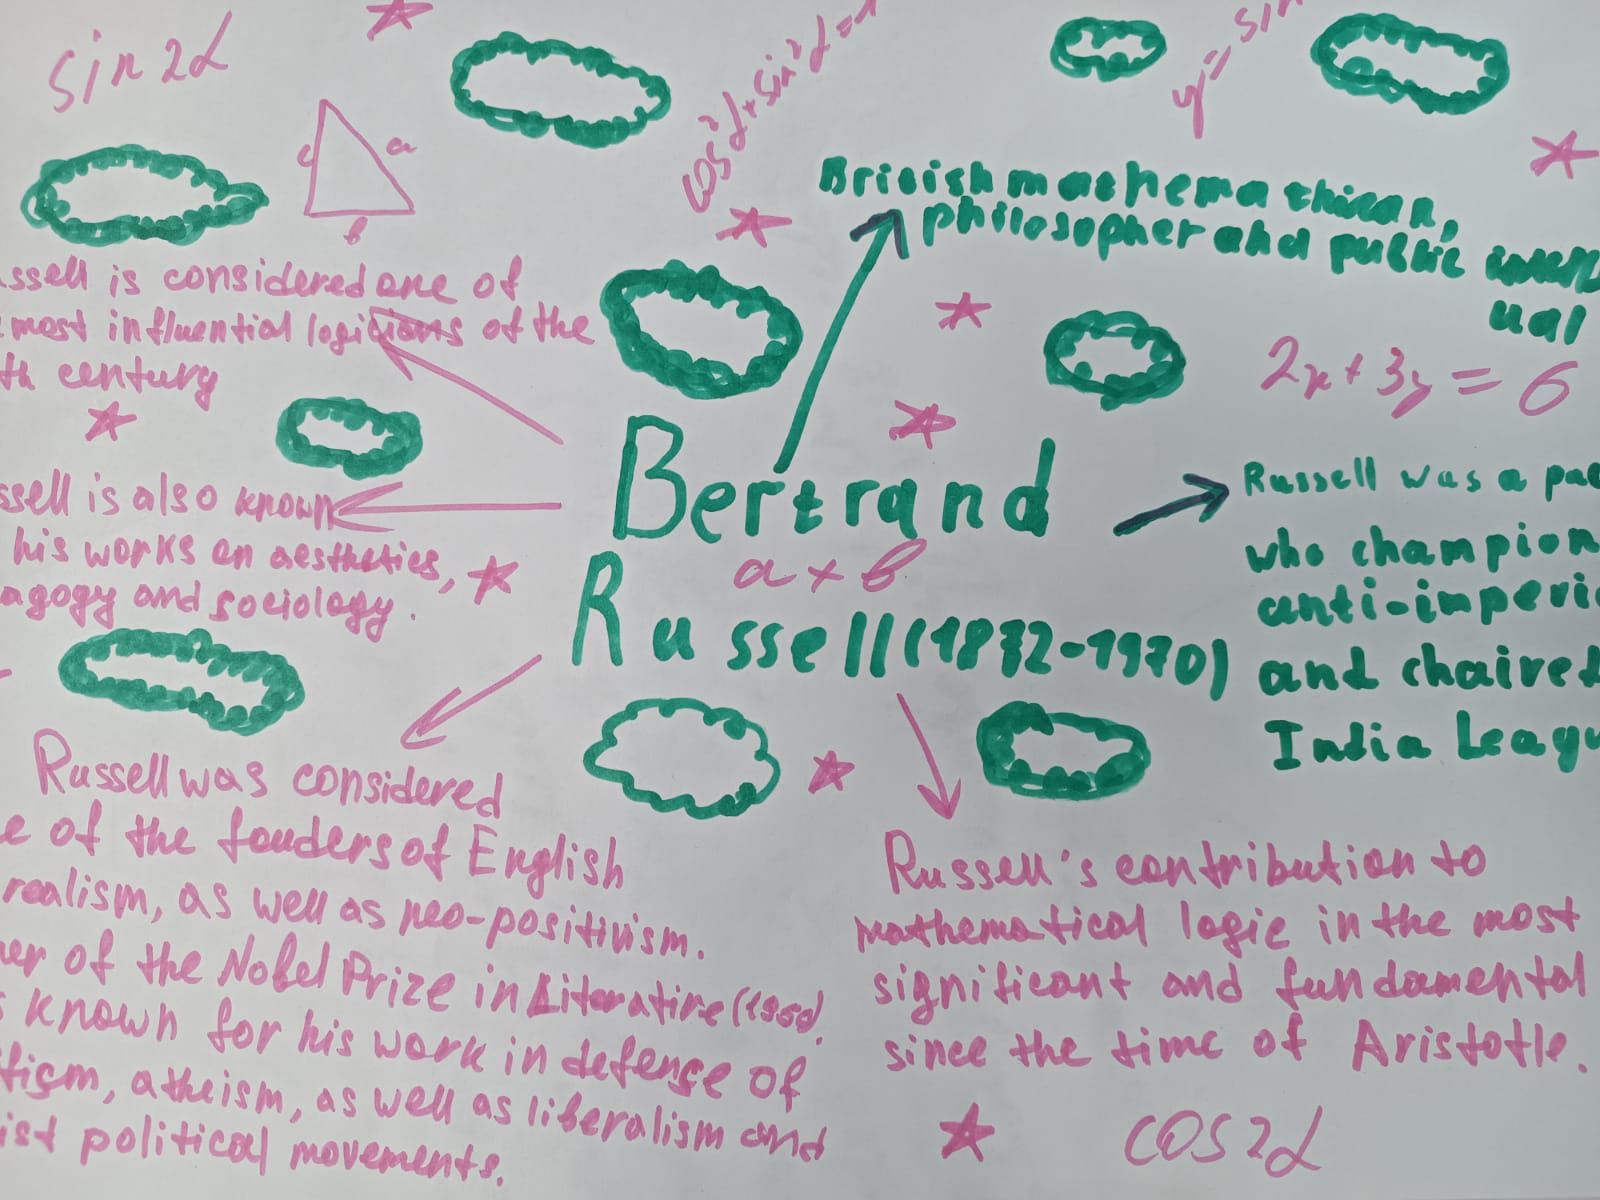 sin2α
cos²α+sin²α=1
y=sin
c a
b
British mathemathican,
philosopher and public
ual
2x+3y=6
ssell is considered one of
most influential logicians of the
th century
Bertrand
a×b
Russell (1872-1970)
ssell is also known
his works on aesthetics,
agogy and sociology.
Russell was a pac
who champion
anti-imperia
and chaired
India Leagu
Russell was considered
e of the fouders of English
realism, as well as neo-positivism.
ner of the Nobel Prize in Literatire (1950).
s known for his work in defense of
tism, atheism, as well as liberalism and
ist political movements.
Russell's contribution to
mathematical logic in the most
significant and fundamental
since the time of Aristotle.
cos2α